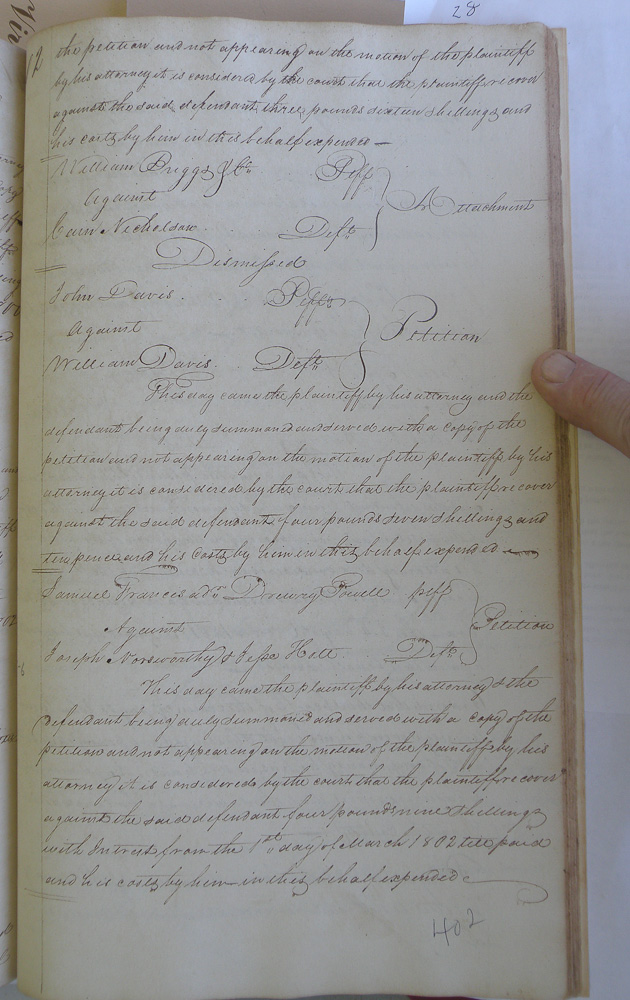 28
12 the petition and not appearing on the motion of the plaintiff
by his attorney it is considered by the court that the plaintiff recover
against the said defendant three pounds sixteen shillings and
his costs by him in this behalf expended —
William Briggs & Co. Plff
Against Attachment
Cain Nicholson Deft.
Dismissed
John Davis Plff
Against Petition
William Davis Deft.
This day came the plaintiff by his attorney and the
defendant being duly summoned and served with a copy of the
petition and not appearing on the motion of the plaintiff by his
attorney it is considered by the court that the plaintiff recover
against the said defendant four pounds seven shillings and
tenpence and his costs by him in this behalf expended
Samuel Frances adr. Drewry Powell plff
Against Petition
Joseph Norsworthy & Jesse Holt Defts.
This day came the plaintiff by his attorney & the
defendant being duly summoned and served with a copy of the
petition and not appearing on the motion of the plaintiff by his
attorney it is considered by the court that the plaintiff recover
against the said defendant four pounds nine shillings
with Interest from the 1st day of March 1802 till paid
and his costs by him in this behalf expended
402